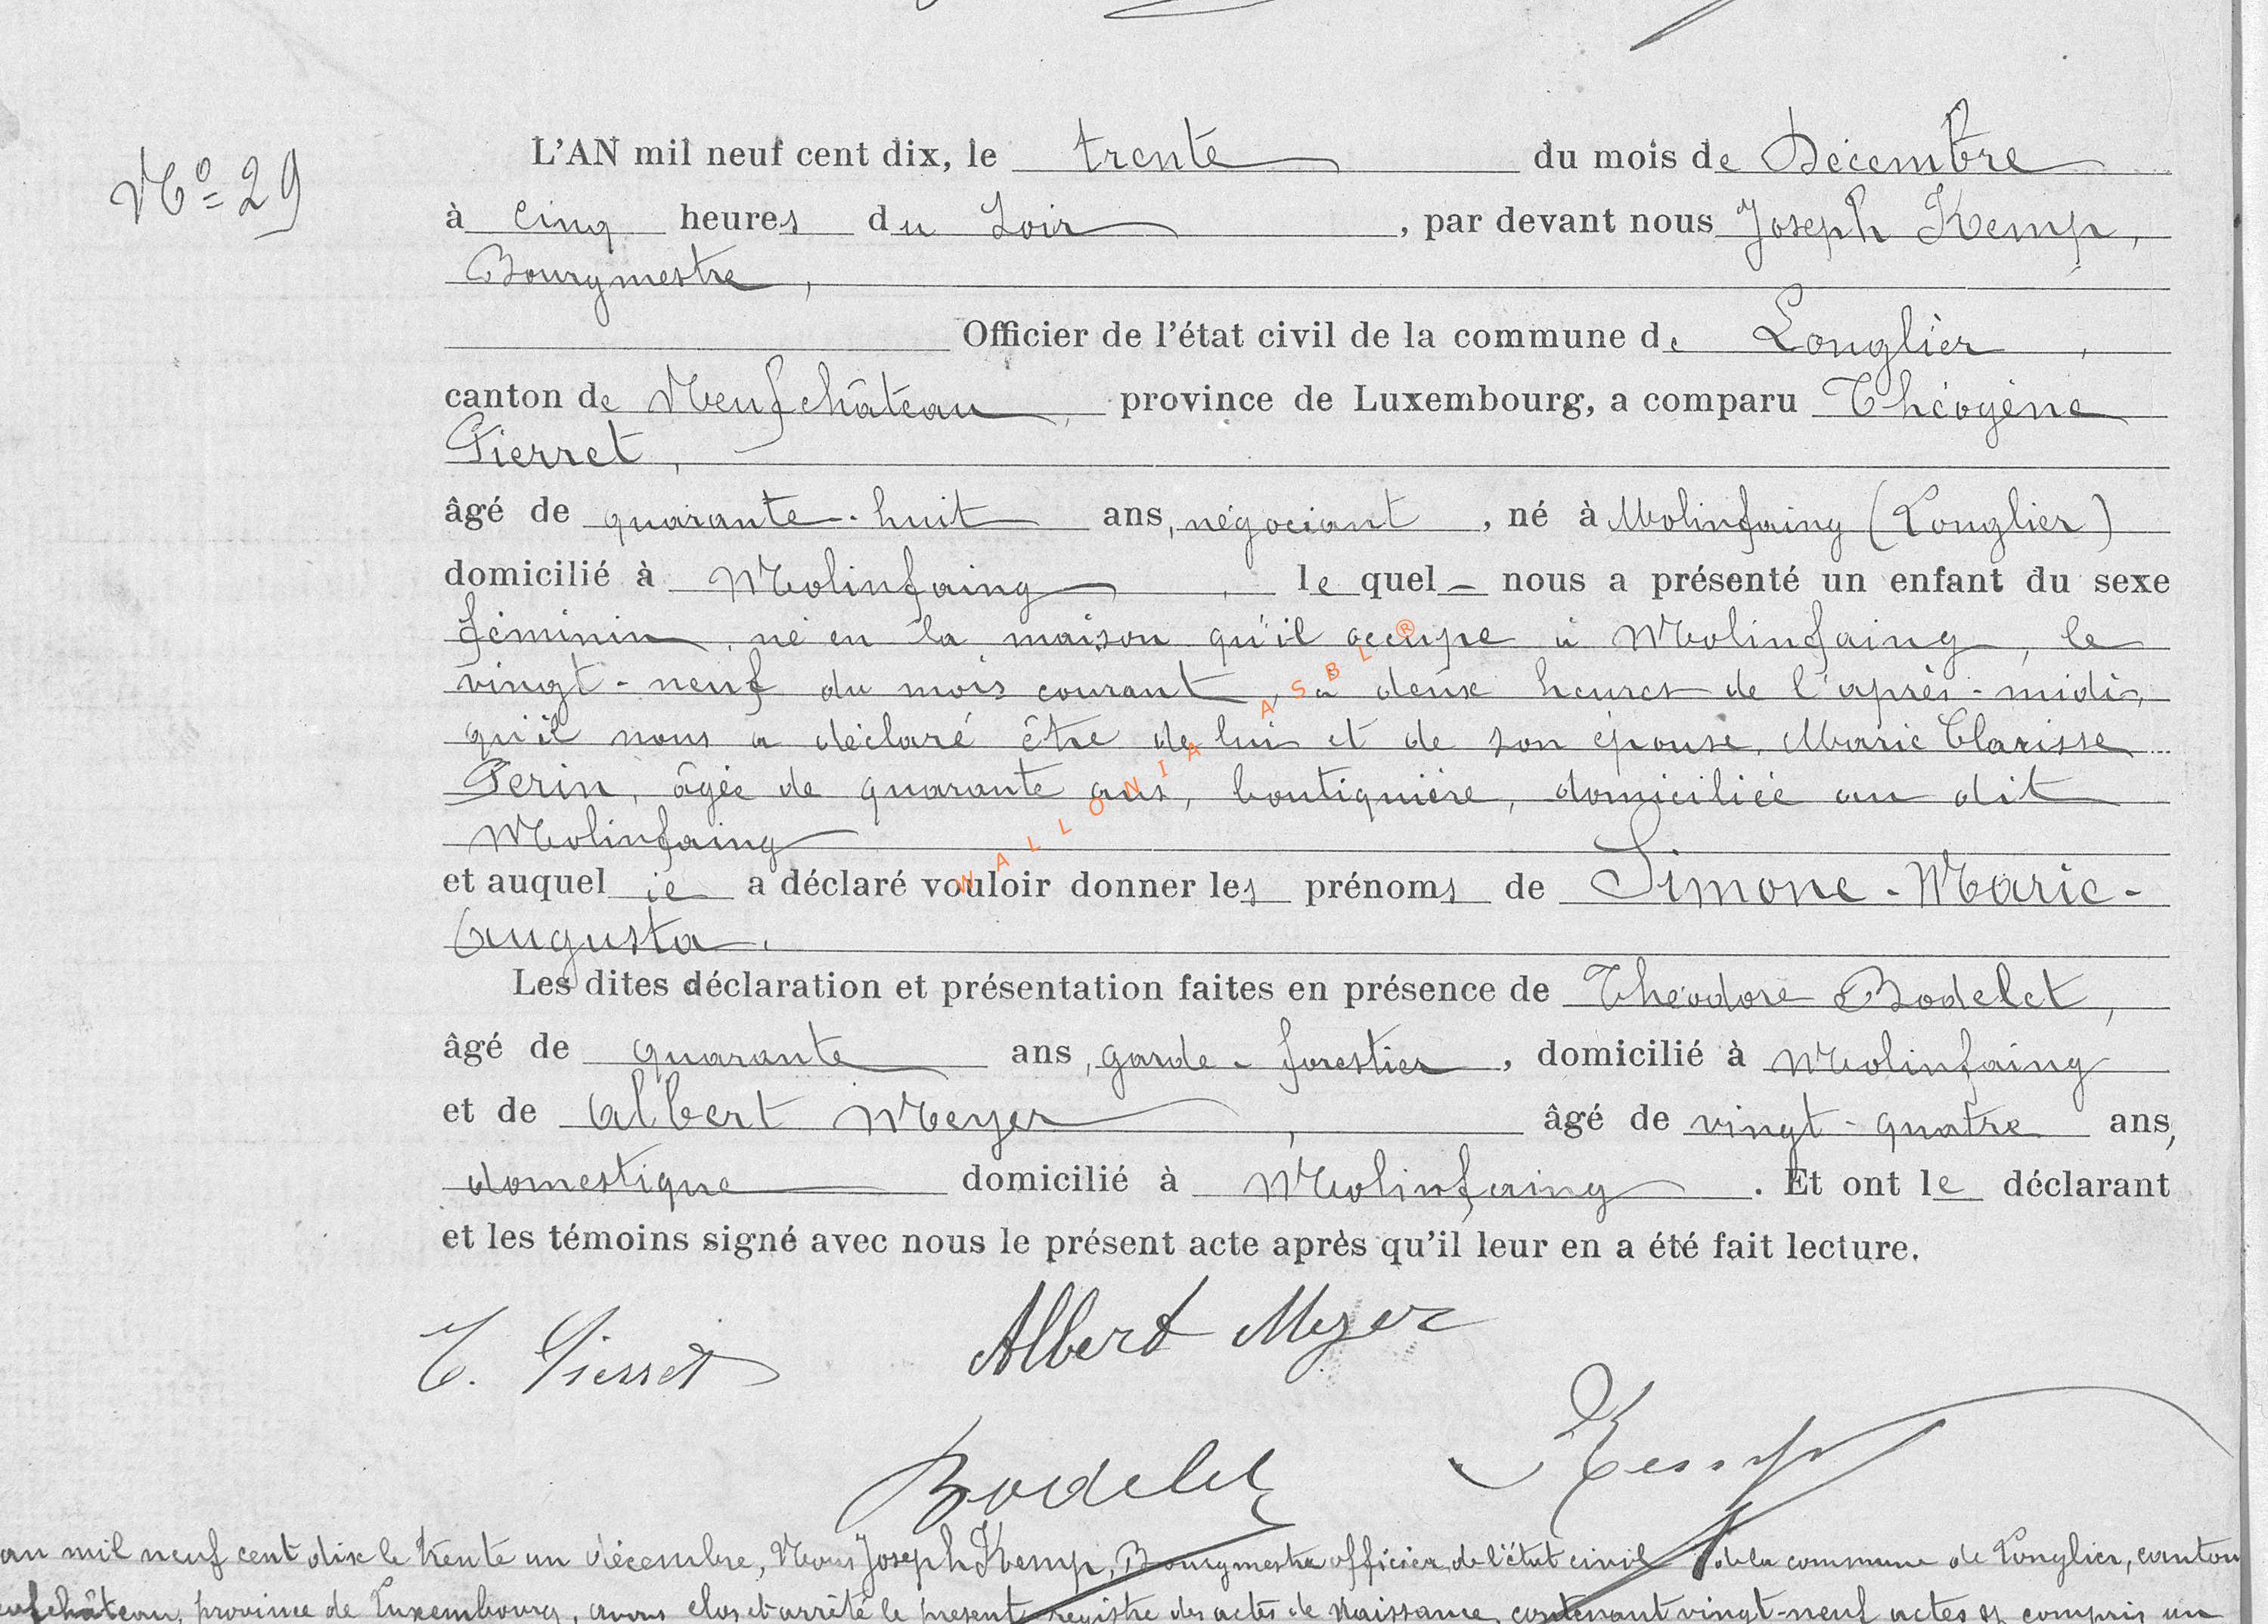 N° 29
L'AN mil neuf cent dix, le trente du mois de Décembre
à cinq heures du soir, par devant nous Joseph Kemp,
Bourgmestre,
Officier de l'état civil de la commune de Longlier,
canton de Neufchâteau, province de Luxembourg, a comparu Théogène
Pierret,
âgé de quarante-huit ans, négociant, né à Molinfaing (Longlier)
domicilié à Molinfaing, le quel nous a présenté un enfant du sexe
féminin, né en la maison qu'il occupe à Molinfaing, le
vingt-neuf du mois courant, à deux heures de l'après-midi,
qu'il nous a déclaré être de lui et de son épouse, Marie Clarisse
Perin, âgée de quarante ans, boutiquière, domiciliée au dit
Molinfaing
et auquel il a déclaré vouloir donner les prénoms de Simone-Marie-
Augusta.
Les dites déclaration et présentation faites en présence de Théodore Bodelet,
âgé de quarante ans, garde-forestier, domicilié à Molinfaing
et de Albert Meyer, âgé de vingt-quatre ans,
domestique domicilié à Molinfaing. Et ont le déclarant
et les témoins signé avec nous le présent acte après qu'il leur en a été fait lecture.
T. Pierret
Albert Meyer
Bodelet
Kemp
an mil neuf cent dix le trente un décembre, Nous Joseph Kemp, Bourgmestre officier de l'état civil de la commune de Longlier, canton
eufchâteau, province de Luxembourg, avons clos et arrêté le présent registre des actes de naissance, contenant vingt-neuf actes y compris un
WALLONIA ASBL ®